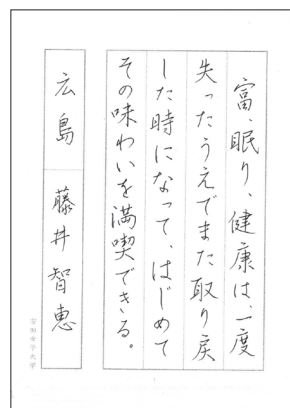 富、眠り、健康は、一度
失ったうえでまた取り戻
した時になって、はじめて
その味わいを満喫できる。
広島 藤井智恵
安田女子大学